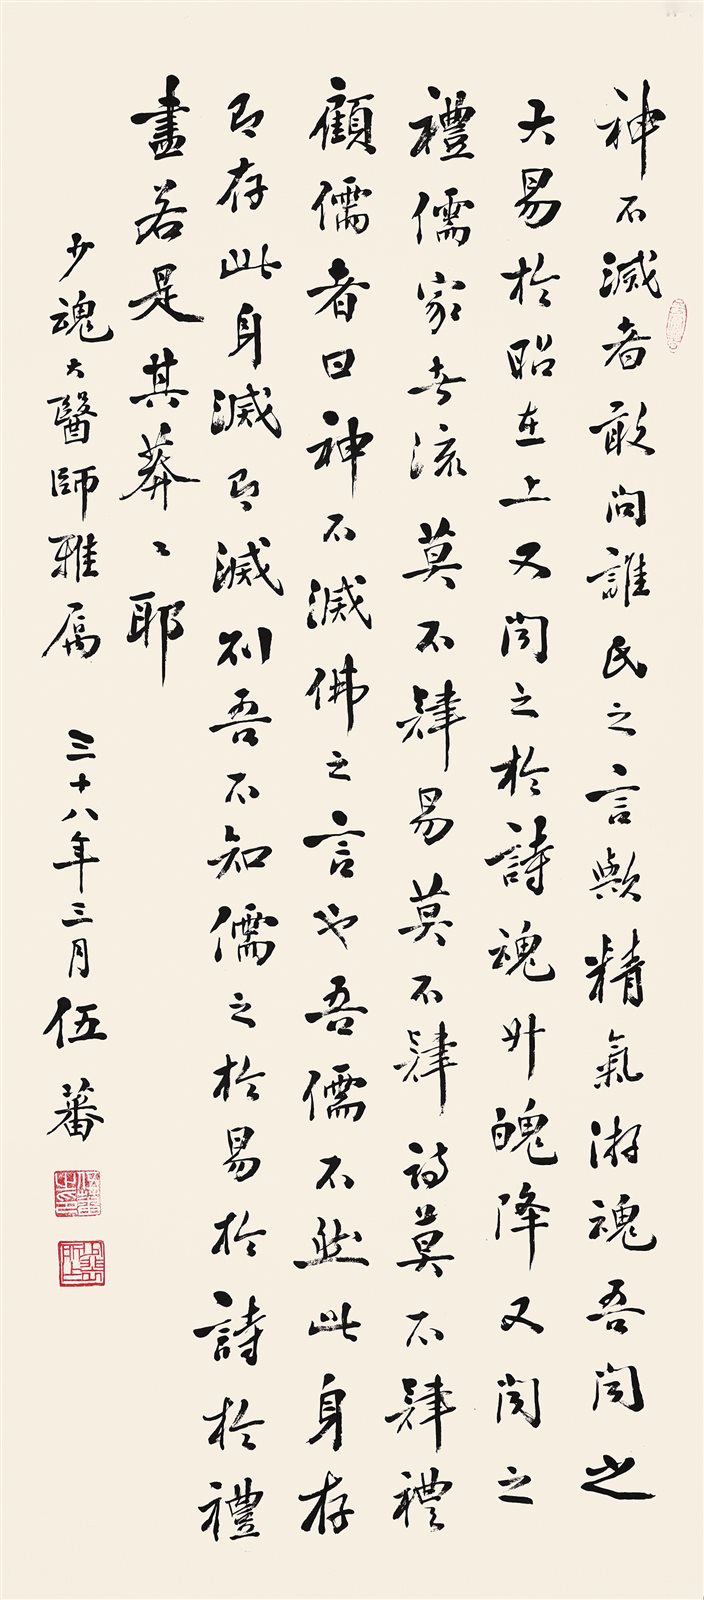 神不滅者敢問誰氏之言歟精氣游魂吾聞之
大易於昭在上又聞之於詩魂升魄降又聞之
禮儒家者流莫不肄易莫不肄詩莫不肄禮
顧儒者曰神不滅佛之言也吾儒不然此身存
即存此身滅即滅則吾不知儒之於易於詩於禮
盡若是其莽〻耶
少魂大醫師雅屬 三十八年三月 伍蕃